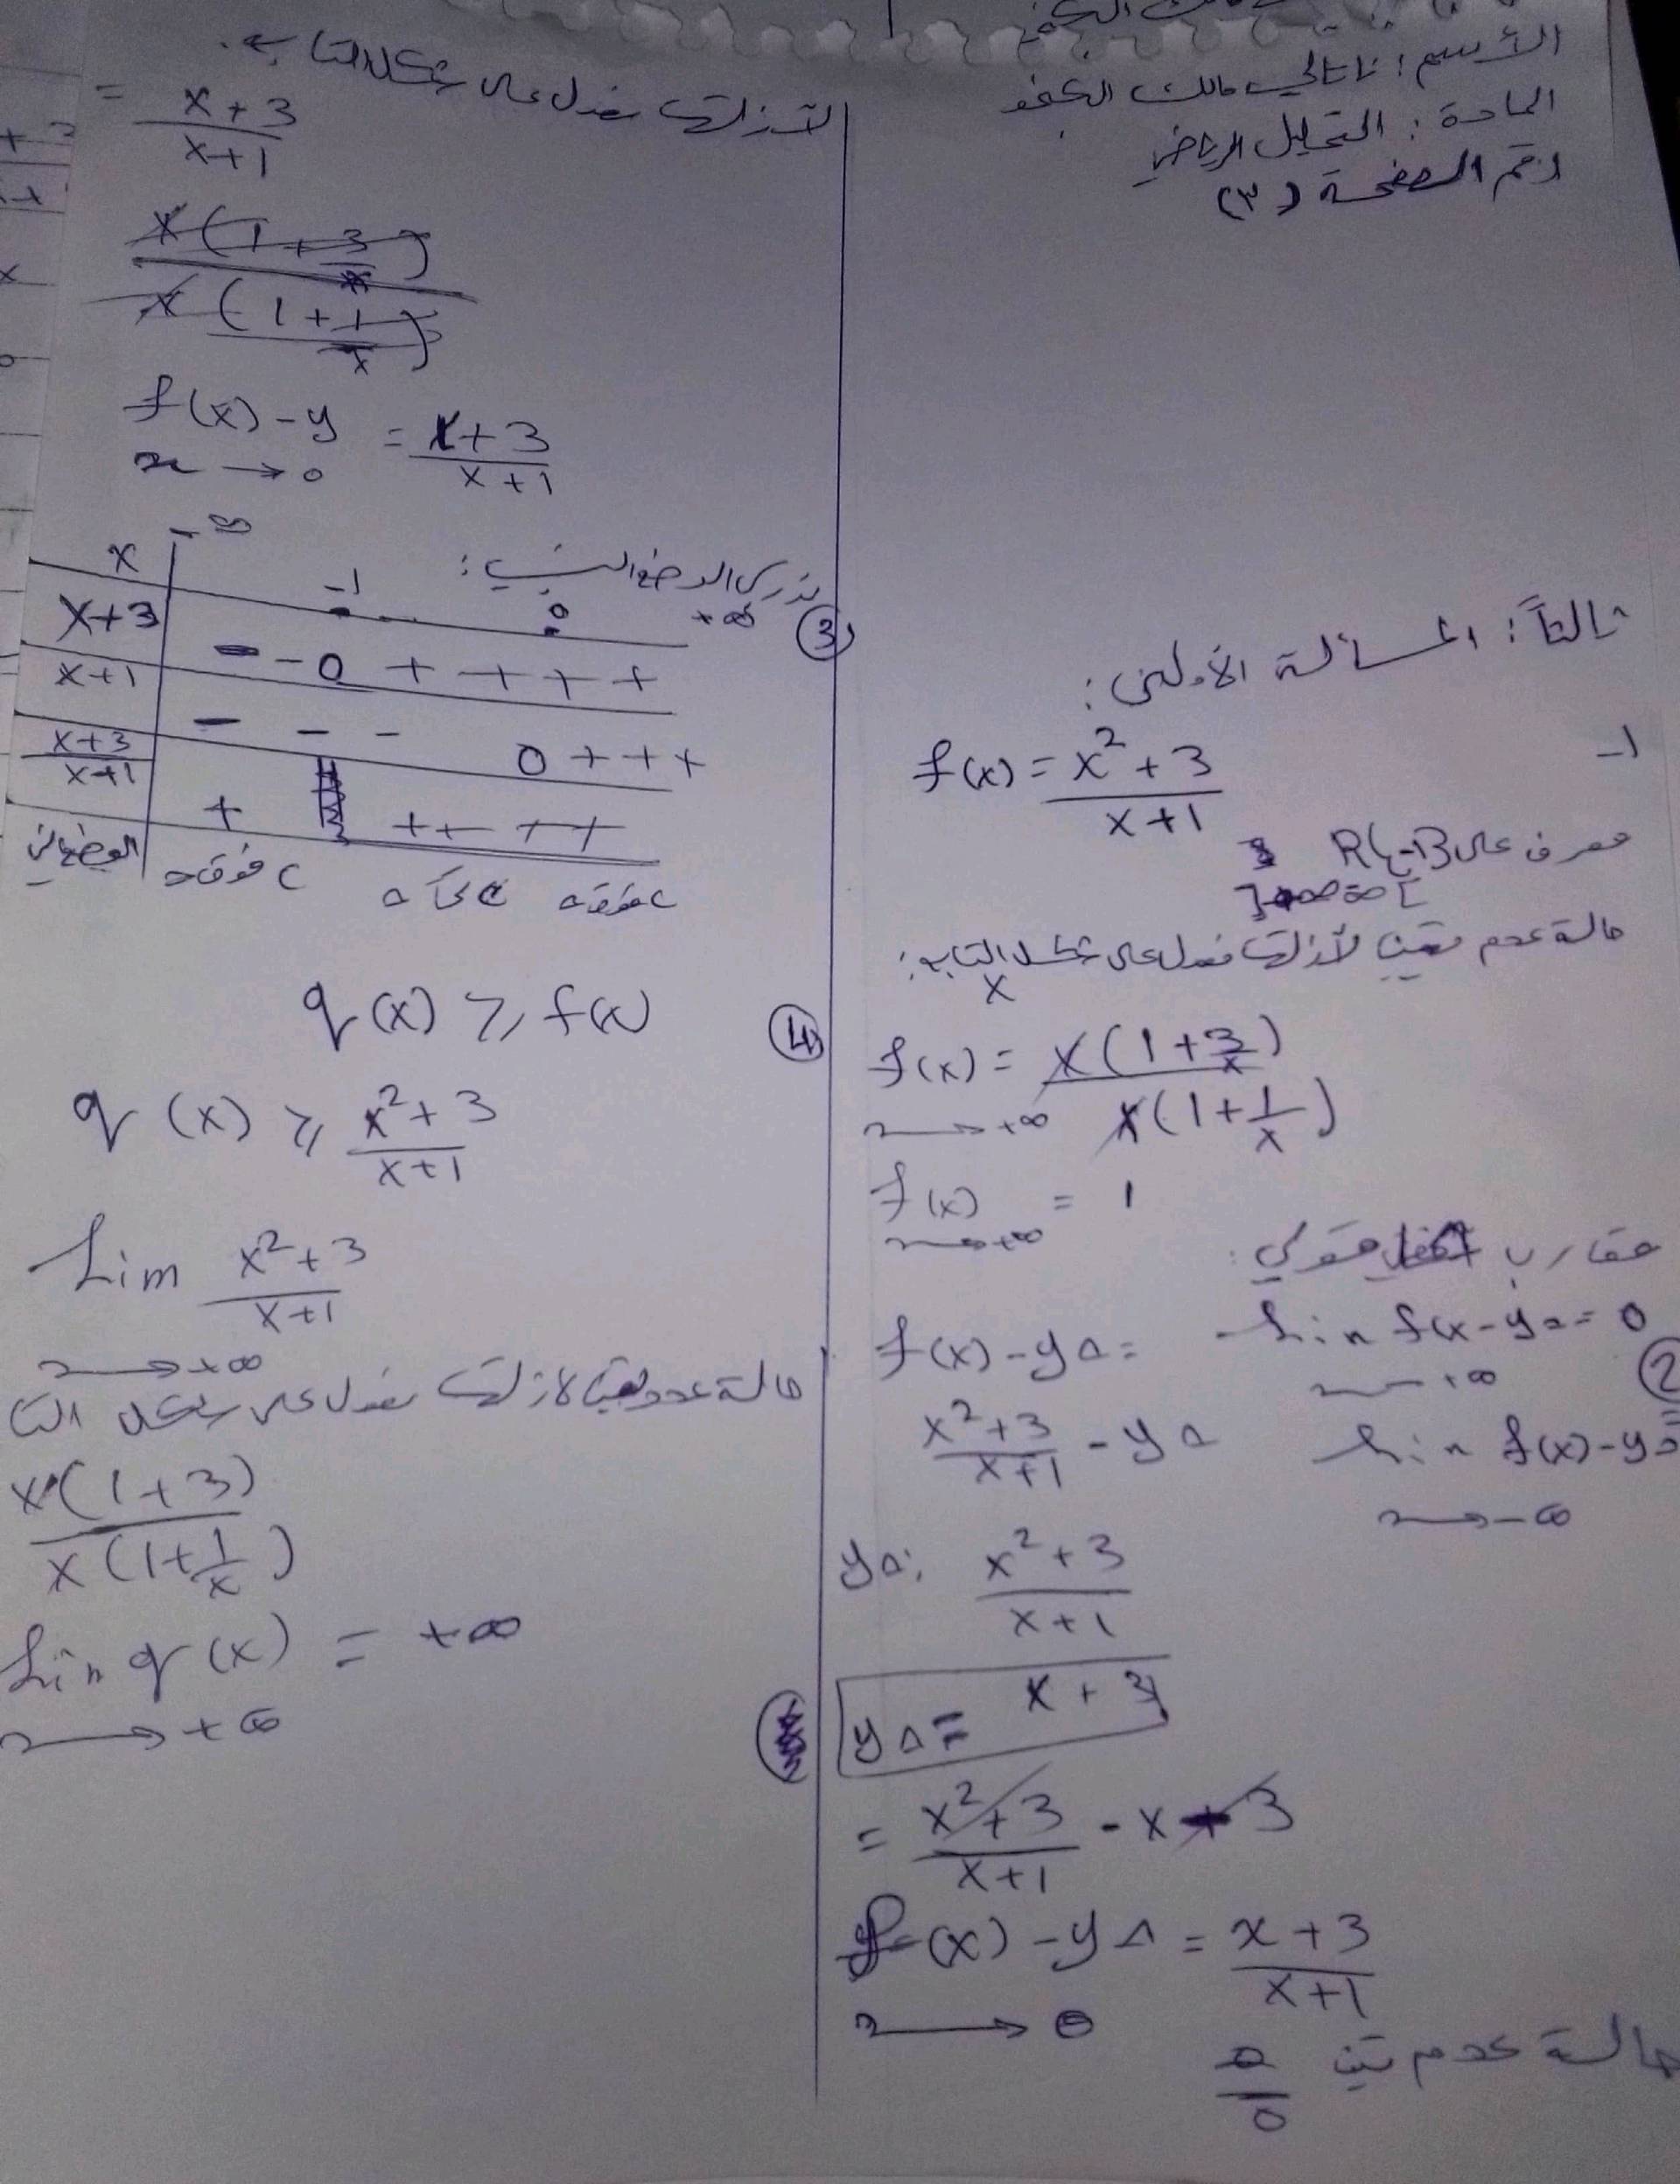 الأسم : تاتالي مالك
المادة : التحليل الرياضي
رقم الصفحة (٣)
ثالثاً : المسألة الأولى :
1-
f(x) = \frac{x^2+3}{x+1}
معرف على R\{-1}
حالة عدم تعيين لأزالتها نعدل على شكل التابع :
x
f(x) = \frac{x(1+\frac{3}{x})}{x(1+\frac{1}{x})}
x → +∞
f(x) = 1
x → +∞
مقارب
② lim f(x)-y_Δ = 0
x → +∞
lim f(x)-y =
x → -∞
f(x)-y_Δ =
\frac{x^2+3}{x+1} - y_Δ
y_Δ: \frac{x^2+3}{x+1}
y_Δ = x+3
= \frac{x^2+3}{x+1} - x - 3
f(x)-y_Δ = \frac{x+3}{x+1}
x → 0
حالة عدم تعيين \frac{0}{0}
لأزالتها نعدل على شكل التابع
= \frac{x+3}{x+1}
\frac{x(1+\frac{3}{x})}{x(1+\frac{1}{x})}
f(x)-y = \frac{x+3}{x+1}
x → 0
③ ندرس الوضع النسبي :
x -∞ -1 0 +∞
x+3 - - 0 + + + +
x+1 - - - 0 + + +
\frac{x+3}{x+1} + ++ ++
الوضع النسبي c فوق c تحت c فوق
④ q(x) ≥ f(x)
q(x) ≥ \frac{x^2+3}{x+1}
Lim \frac{x^2+3}{x+1}
x → +∞
حالة عدم تعيين لأزالتها نعدل على شكل التا
\frac{x(1+3)}{x(1+\frac{1}{x})}
Lim q(x) = +∞
x → +∞